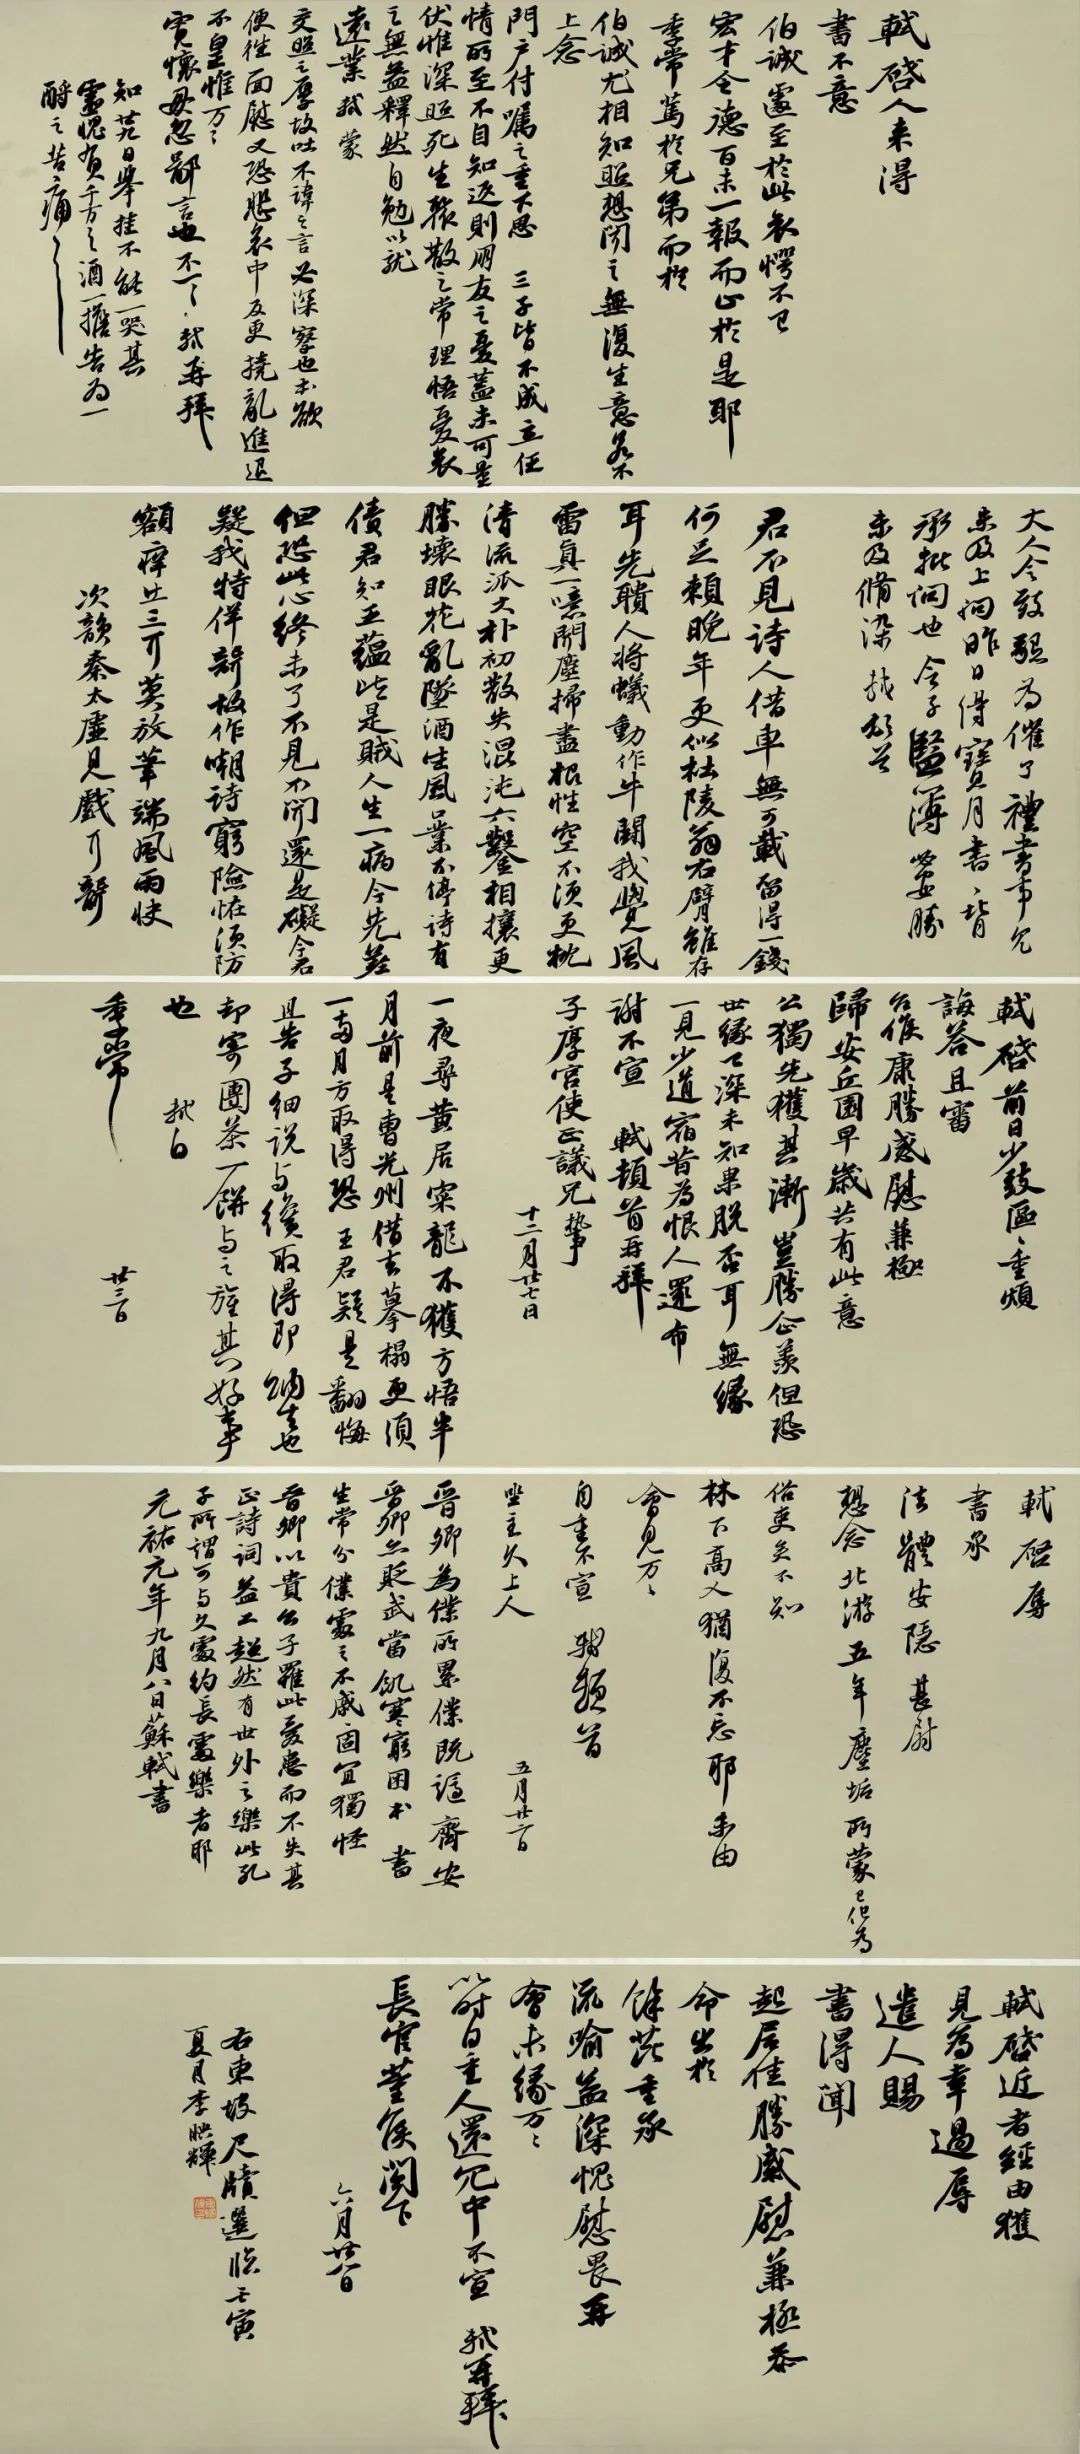 軾啓人來得
書不意
伯誠遽至於此哀愕不已
宏才令德百未一報而止於是耶
季常篤於兄弟而於
伯誠尤相知照想聞之無復生意若不
上念
門户付囑之重下思三子皆不成立任
情所至不自知返則朋友之憂蓋未可量
伏惟深照死生聚散之常理悟憂哀
之無益釋然自勉以就
遠業軾蒙
交照之厚故吐不諱之言必深察也本欲
便往面慰又恐悲哀中反更撓亂進退
不皇惟万々
寬懷毋忽鄙言也不一々軾再拜
知廿九日舉挂不能一哭其
靈愧負千万之酒一擔告为一
酹之苦痛々
大人令致懇为催了禮書事冗
未及上問昨日得寶月書々皆
承批問也令子監簿必安勝
未及脩染軾頓首
君不見詩人借車無可載留得一錢
何足賴晚年更似杜陵翁右臂雖存
耳先聵人將蟻動作牛鬭我覺風
雷真一噫聞塵掃盡根性空不須更枕
清流派大朴初散失混沌六鑿相攘更
勝壞眼花亂墜酒生風口業不停詩有
債君知五蘊皆是賊人生一病今先差
但恐此心終未了不見不聞還是礙今君
疑我特佯聾故作嘲詩窮險怪須防
額癢出三耳莫放筆端風雨快
次韻秦太虛見戲耳聾
軾啓前日少致區々重煩
誨答且審
台候康勝感慰兼極
歸安丘園早歲共有此意
公獨先獲其漸豈勝企羨但恐
世緣已深未知果脫否耳無緣
一見少道宿昔為恨人還布
謝不宣軾頓首再拜
子厚宮使正議兄執事
十二月廿七日
一夜尋黄居寀龍不獲方悟半
月前是曹光州借去摹搨更須
一两月方取得恐王君疑是翻悔
且告子細説与纔取得即納去也
却寄團茶一餅与之旌其好事
也軾白
季常
廿三日
軾啓辱
書承
法體安隱甚慰
想念北游五年塵垢所蒙已化為
俗吏矣不知
林下高人猶復不忘耶未由
會見万々
自重不宣軾頓首
坐主久上人
五月廿二日
晉卿為僕所累僕既謫齊安
晉卿亦貶武當飢寒窮困本書
生常分僕處之不戚固宜獨怪
晉卿以貴公子罹此憂患而不失其
正詩詞益工超然有世外之樂此孔
子所謂可与久處約長處樂者耶
元祐元年九月八日蘇軾書
軾啓近者經由獲
見為幸過辱
遣人賜
書得聞
起居佳勝感慰兼極忝
命出於
餘芘重承
流喻益深愧慰畏再
會未緣万々
以時自重人還冗中不宣軾再拜
長官董侯閣下
六月廿八日
右東坡尺牘選臨壬寅
夏月李